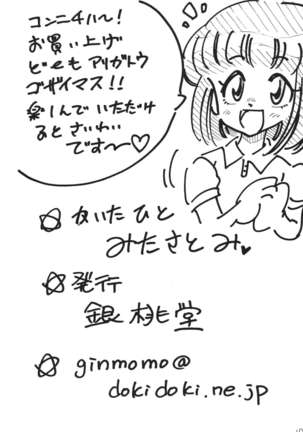 コンニチハ〜!
お買い上げ
どーもアリガトウ
ゴザイマス!!
楽しんでいただけ
るとさいわい
です〜♡
☆かいたひと
みたさとみ♥
☆発行
銀桃堂
☆ginmomo@
dokidoki.ne.jp